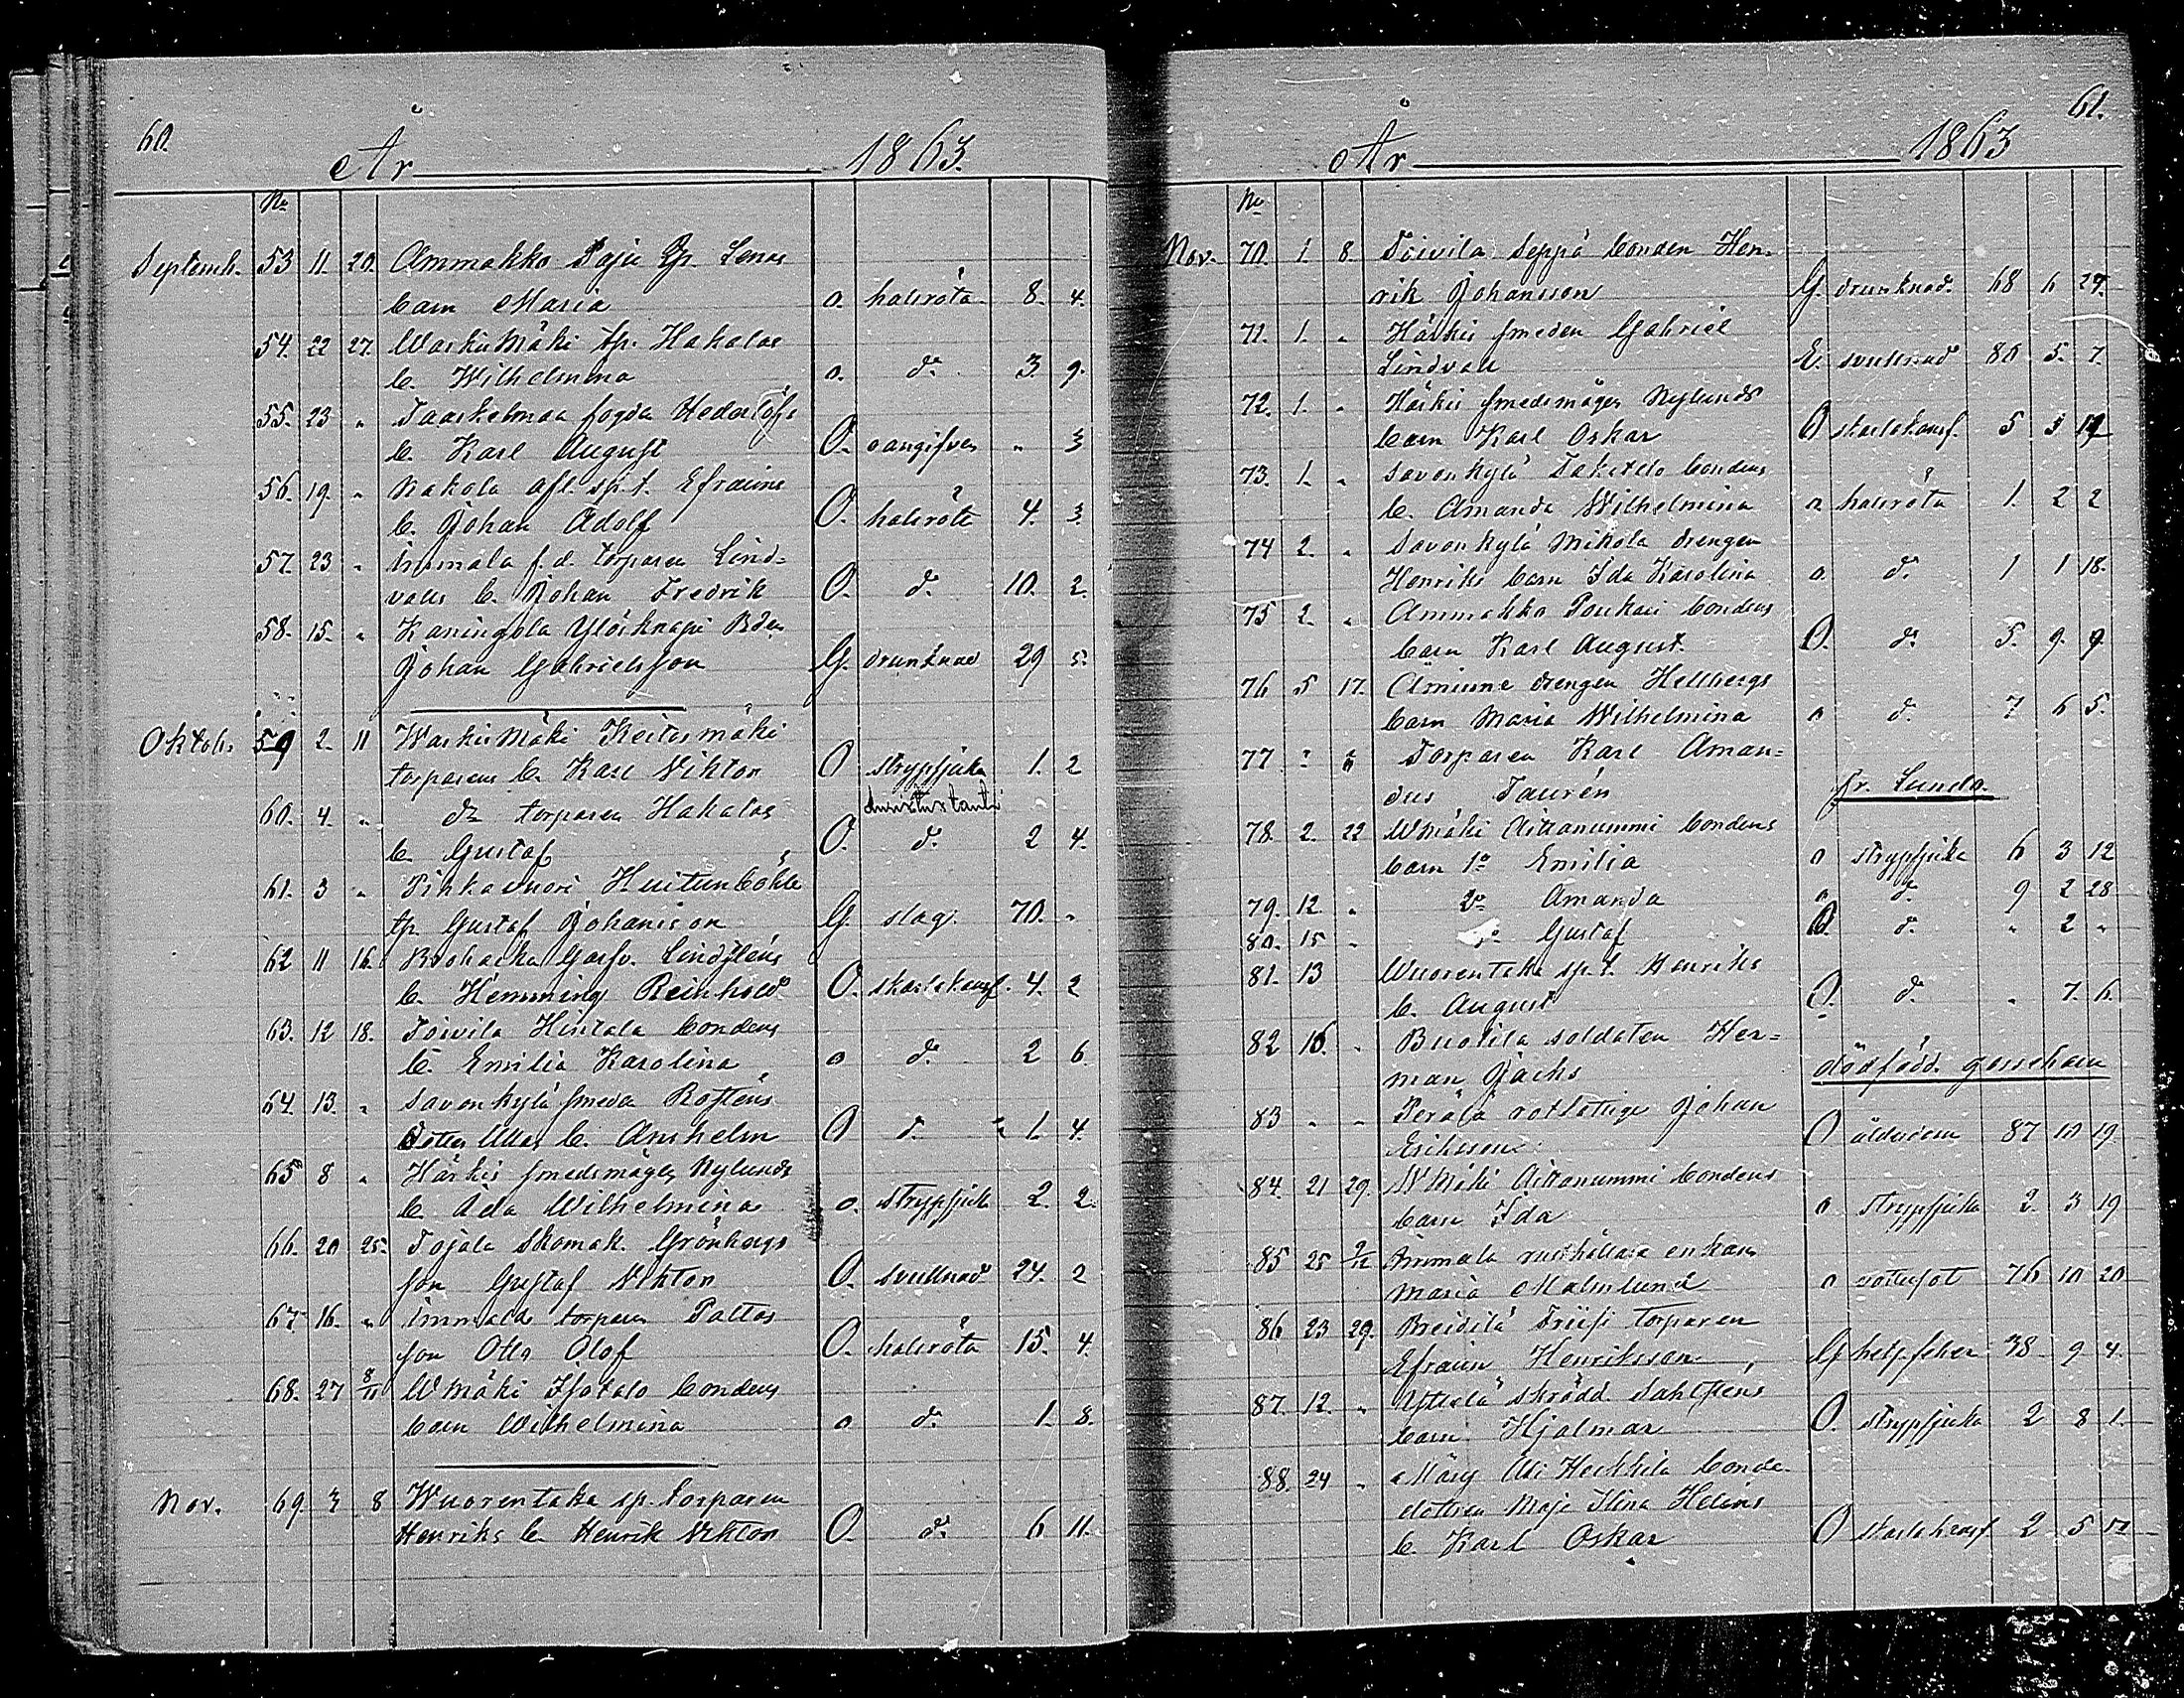 60.
År 1863.
No
Septemb. 53 11. 20. Ammakko Paju Lenas
barn Maria o. halsröta 8. 4.
54. 22 27. Waskiomäki tp. Hakalas
b. Wilhelmina o. do 3. 9.
55. 23 " fogden
b. Karl August O. oangifven " 3
56. 19. " Nakola sp.t. Efraims
b. Johan Adolf O. halsröta 4. 3.
57. 23 " Immala f.d. torparen Lind-
valls b. Johan Fredrik O. do 10. 2.
58. 15. " Kaningola Bden
Johan Gabrielsson G. drunknad 29 5.
Oktob. 59 2. 11 Waskiomäki Keitasmäki
torparens b. Karl Viktor O strypsjuka 1. 2
60. 4. " do torparen Hakalas
b. Gustaf O. do 2 4.
61. 3 " Pinkavuori
tp. Gustaf Johansson G. slag. 70. "
62 11 16. Garfv.
b. Hemming Reinhold O. skarlakansf. 4. 2
63. 12 18. Toivila Hintala bondens
b. Emilia Karolina o do 2 6
64. 13. " Savonkylä smeden
dotter Ullas b. Anshelm O do 1. 4.
65 8 " Härkis smedsmågen Nylunds
b. Ada Wilhelmina o. strypsjuk 2. 2.
66. 20 25. Tojala Skomak. Grönbergs
son Gustaf Viktor O. svullnad 24. 2
67. 16. " Immala torparen Paltas
son Otto Olof O. halsröta 15. 4.
68. 27 8/11 Wmäki Isotalo bondens
barn Wilhelmina o do 1. 8.
Nov. 69. 3 8 Wuorentaka sp. torparen
Henriks b. Henrik Viktor O. do 6 11.
61.
År 1863
No
Nov. 70. 1. 8. Toivila Seppä bonden Hen-
rik Johansson G. drunknad. 68 6 27.
71. 1. " Härkis smeden Gabriel
Lindvall E. svullnad 80 5. 7.
72. 1. " Härkis smedsmågen Nylunds
barn Karl Oskar O skarlakansf. 5 3
73. 1. " Savonkylä bondens
b. Amanda Wilhelmina o halsröta 1. 2 2
74 2. " Savonkylä Mikola drengen
Henriks barn Ida Karolina o. do 1 1 18.
75 2. " Ammakko Poukari bondens
barn Karl August. O. do 5. 9. 9.
76 5 17. drengen Hellbergs
barn Maria Wilhelmina o do 7 6 5.
77 Torparen Karl Aman-
dus Taurén fr. Lundo.
78. 2. 22 Wmäki Aittanummi bondens
barn 1o Emilia o strypsjuka 6 3 12
79. 12. " 2o Amanda o do 9 2 28
80. 15 " Gustaf O. do " 2 "
81. 13 Wuorentaka sp.t. Henriks
b. August O. do " 7. 6.
82 16. " Buotila soldaten Her-
man Jacks dödfödd. gossebarn
83 " " Perälä rotfattige Johan
Eriksson. O ålderdom 87 10 19
84. 21 29. Wmäki Aittanummi bondens
barn Ida o strypsjuka 2. 3 19
85 25 9/12 Immala rusthållare enkan
Maria Malmlund o vattusot 76 10 20
86 23 29. Preidilä torparen
Efraim Henriksson G hets.feber 38 9 4.
87. 12. " skrädd.
barn Hjalmar O. strypsjuka 2 8 1.
88. 24 " Märy Ali Heikkilä bonde
dottren Maja Stina Helins
b. Karl Oskar O skarlakansf 2 5